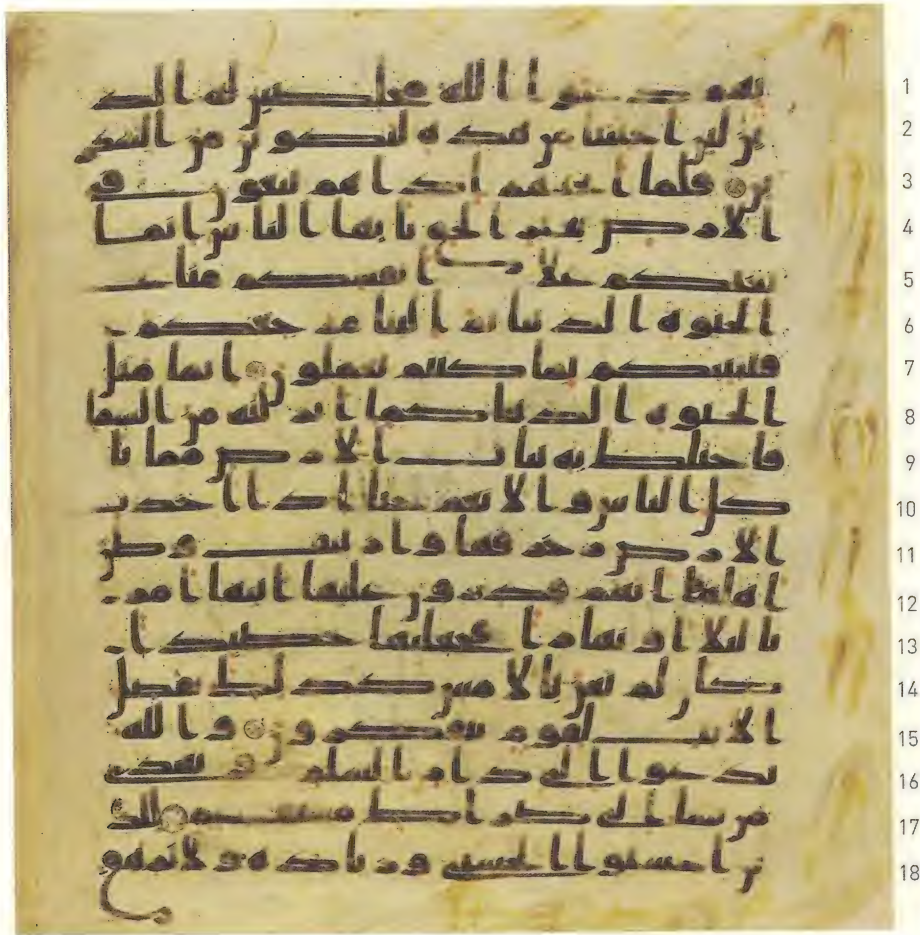 بهم دعوا الله مخلصين له الد
ين لئن انجيتنا من هذه لنكونن من الشكر
ين فلما انجيهم اذا هم يبغون في
الارض بغير الحق يايها الناس انما
بغيكم على انفسكم متاع
الحيوة الدنيا ثم الينا مرجعكم
فننبئكم بما كنتم تعملون انما مثل
الحيوة الدنيا كما انزلنه من السما
فاختلط به نبات الارض مما يا
كل الناس والانعم حتى اذا اخذت
الارض زخرفها وازينت وظن
اهلها انهم قدرون عليها اتيها امر
نا ليلا او نهارا فجعلنها حصيدا
كان لم تغن بالامس كذلك نفصل
الايت لقوم يتفكرون والله
يدعوا الى دار السلم ويهدى
من يشا الى صراط مستقيم للذ
ين احسنوا الحسنى وزيادة ولا يرهق
1
2
3
4
5
6
7
8
9
10
11
12
13
14
15
16
17
18